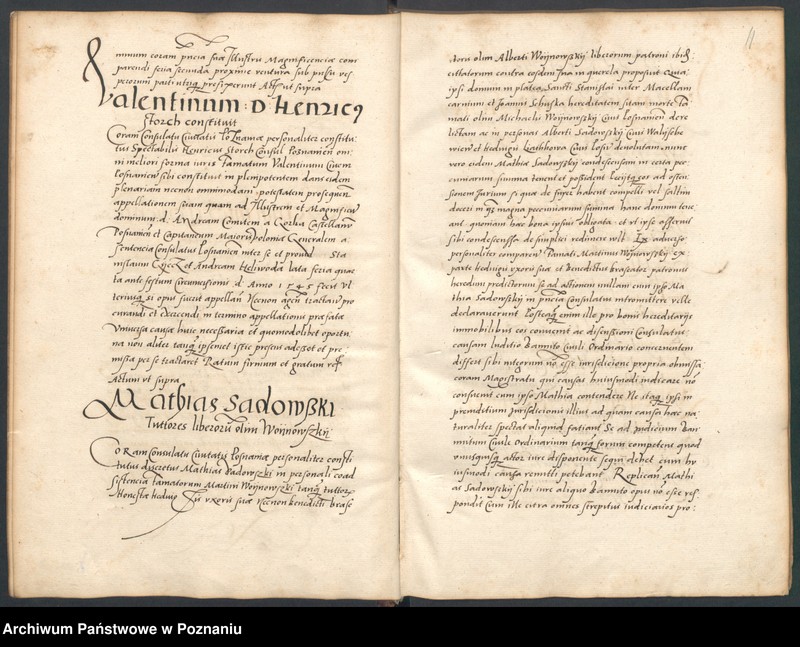 minum coram pncia sua Illustri Magnificencia com
parendi feria secunda proxime ventura sub pulsu ves
perorum partibusq prefixerunt Actum ut supra
Valentinum : D Henricq
Storch constituit
Coram Consulatu Civitatis Poznaniae personaliter constitu
tus Spectabilis Henricus Storch Consul Posnanien omni
ni meliori forma iuris famatum Valentinum Civem
Posnanien sibi constituit in plenipotentem dans eidem
plenariam necnon omnimodam potestatem prosequen
appellationem suam quam ad Illustrem et Magnificum
dominum d. Andream Comitem a Gorka Castellanum
Posnanien et Capitaneum Maioris polonia Generalem a
sentencia Consulatus Posnanien inter se et provid Sta
nislaum et Andream Heliwoda lata feria quar
ta ante festum circumcisionis d Anno 1545 fecit vl
teriusq si opus fuerit appellan Necnon agen tractan pro
curandi et exercendi in termino appellationis prafata
Universa causa huic necessaria et quomodolibet oportu
na non aliter tanq ipsemet istic presens adesset et pre
missa per se tractaret Ratum firmum et gratum
Actum vt supra
Mathias Sadowski
Tuttores liberorum olim Woynowskii
Coram Consulatu Civitatis Posnaniae personaliter consti
tutus discretus Mathias Sadowski in personali coad
sistencia famatorum Martini Woynowski tanq tuttor
Honesta Hedvigis uxoris sua Necnon benedicti brase
11
atora olim Alberti Woynowskij liberorum patroni ibid
cittatorum contra eosdem sua in querela proposuit Quia
ipsi domum in platea Sancti Stanislai inter Macellam
carnium et Joannis Schuska hereditatem sitam morte fa
mati olim Michaelis Woynowskij Civis Posnanien dere
lictam ac in personas Alberti Sadowskij Civis
view et Hedvigis Civis devolutam nunc
vero eidem Mathia Sadowskij condescensam in certa pe
cuniarum summa tenent et possident eos ad osten
sionem Jurium si qua de super habent compelli vel saltim
doceri in qz magna pecuniarum summa hanc domum tene
ant quoniam hac bona ipsius obligata et vt ipse asserit
sibi condescensa de simplici redimere wlt Ex adverso
personaliter comparen famati Martinus Woynowskij ex
parte hedvigis uxoris sua et Benedictus braseator patronus
heredum predictorum se ad actionem nullam cum ipso Ma
thia Sadowskij in pncia Consulatus intromittere velle
declaraverunt Posteaq enim ille pro bonis hereditarijs
immobilibus eos convenit ac discussioni Consulatus
causam Judicio Bannito Civili Ordinario concernentem
differt sibi integrum no esse iurisdicione propria obmissa
coram Magistratu qui causas huiusmodi iudicare no
consuevit cum ipso Mathia contendere Ne staq ipsi in
preiudicium Jurisdicionis illius ad quam causa hac na
turaliter spectat aliquid fatiant Se ad Judicium Ban
nitum Civile Ordinarium tanq forum competens quod
unusquisq actor iure disponente sequi debet cum hu
iusmodi causa remitti petebant Replican Mathi
as Sadowskij sibi iure aliquo Bannito opus no esse res
pondit Cum ille citra omnes strepitus iudiciarios pro:
Archiwum Państwowe w Poznaniu